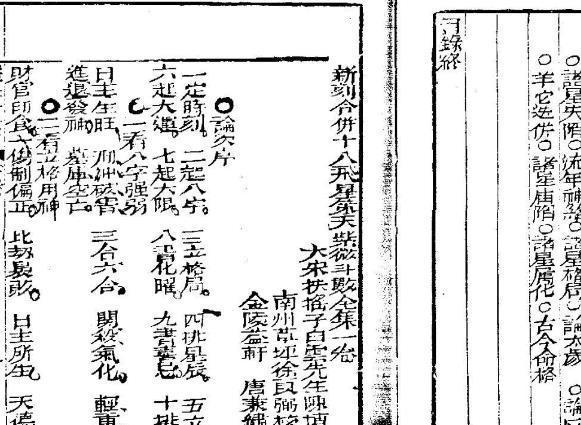 ○諸星失陷○流年神煞○諸星格局○論太歲○論
○諸星廟陷○諸星屬化○古今命格
目錄終
新刻合併十八飛星策天紫微斗數全集一卷
大宋扶搖子白雲先生陳摶
南州草坪徐良弼校
金陵益軒 唐
○論次序
一定時刻。二起八字。三立格局。四排星辰。五立
六起大運。七起大限。八 化曜。九書喜忌。十排
○一看八字強弱
日主生旺 刑沖破害 三合六合。 氣化。輕重
進退 神。墓庫空亡。
○二看立格用神
財官印食 制偏正 比劫 日主所生。天德